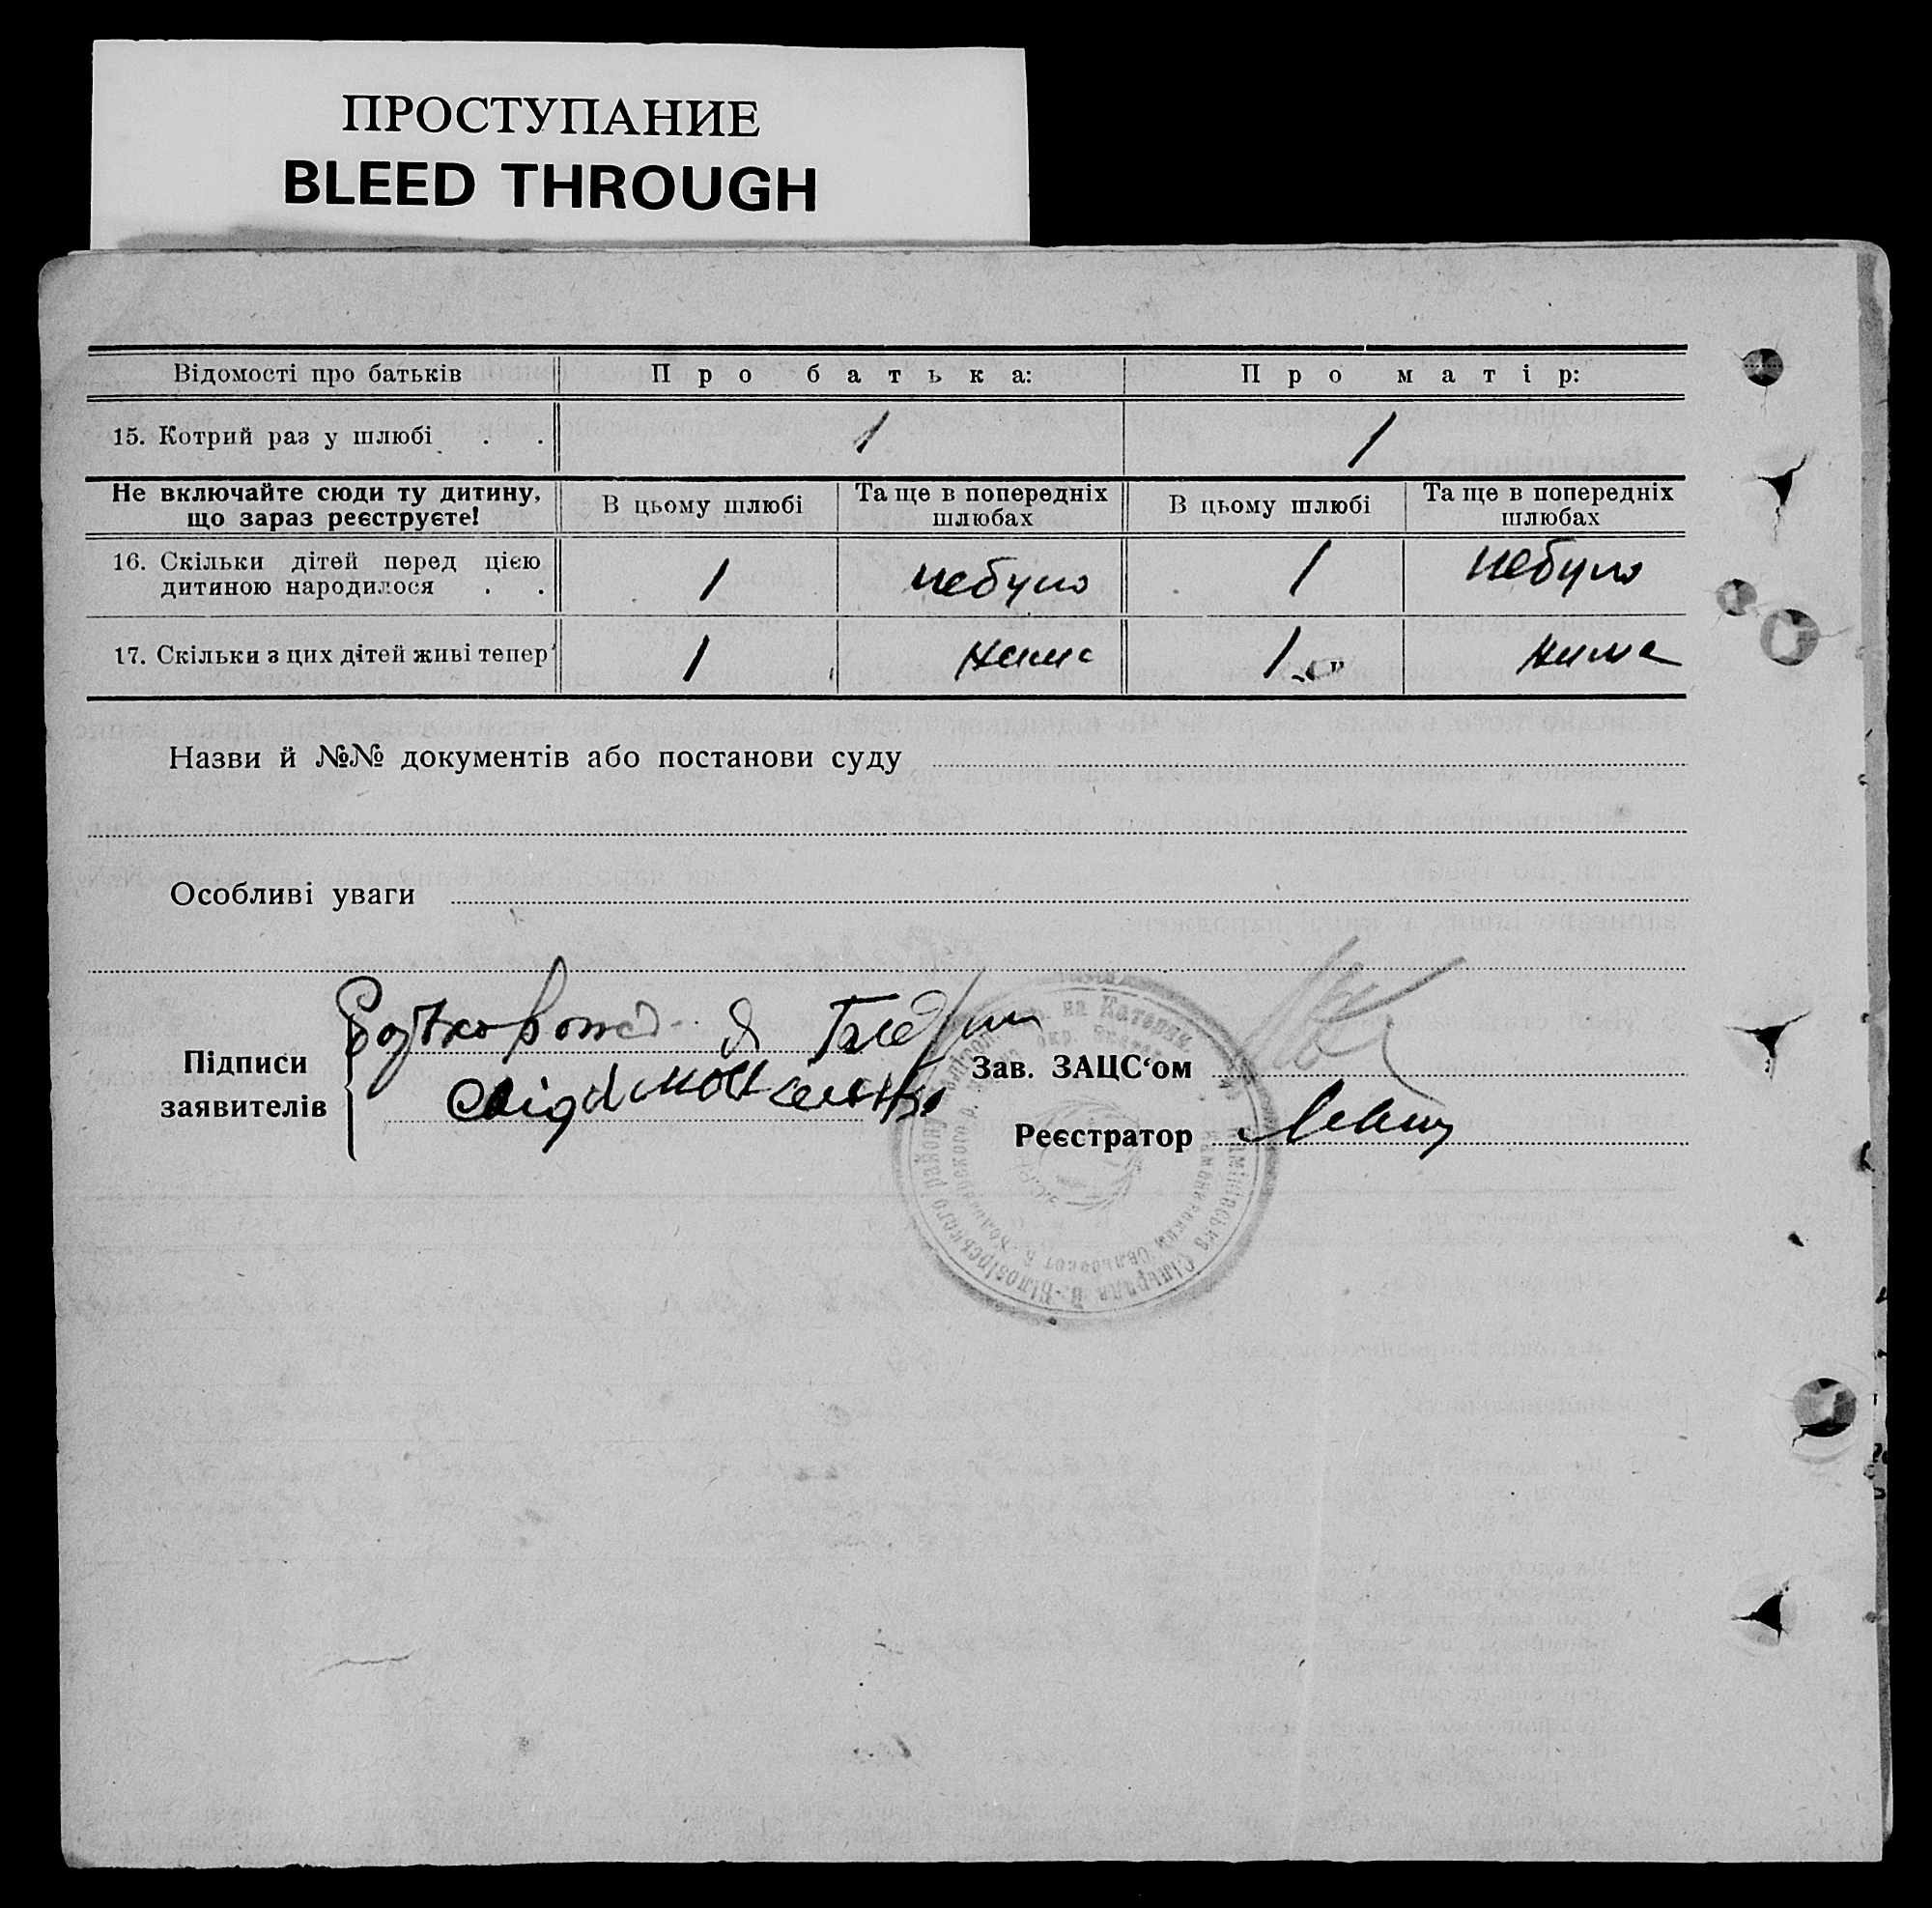 ПРОСТУПАНИЕ
BLEED THROUGH
Відомості про батьків Про батька: Про матір:
15. Котрий раз у шлюбі . . 1 1
Не включайте сюди ту дитину, що зараз реєструєте! В цьому шлюбі Та ще в попередніх шлюбах В цьому шлюбі Та ще в попередніх шлюбах
16. Скільки дітей перед цією дитиною народилося . . 1 небуло 1 небуло
17. Скільки з цих дітей живі тепер 1 нима 1 нима
Назви й №№ документів або постанови суду
Особливі уваги
Підписи заявителів
Зав. ЗАЦС‘ом
Реєстратор